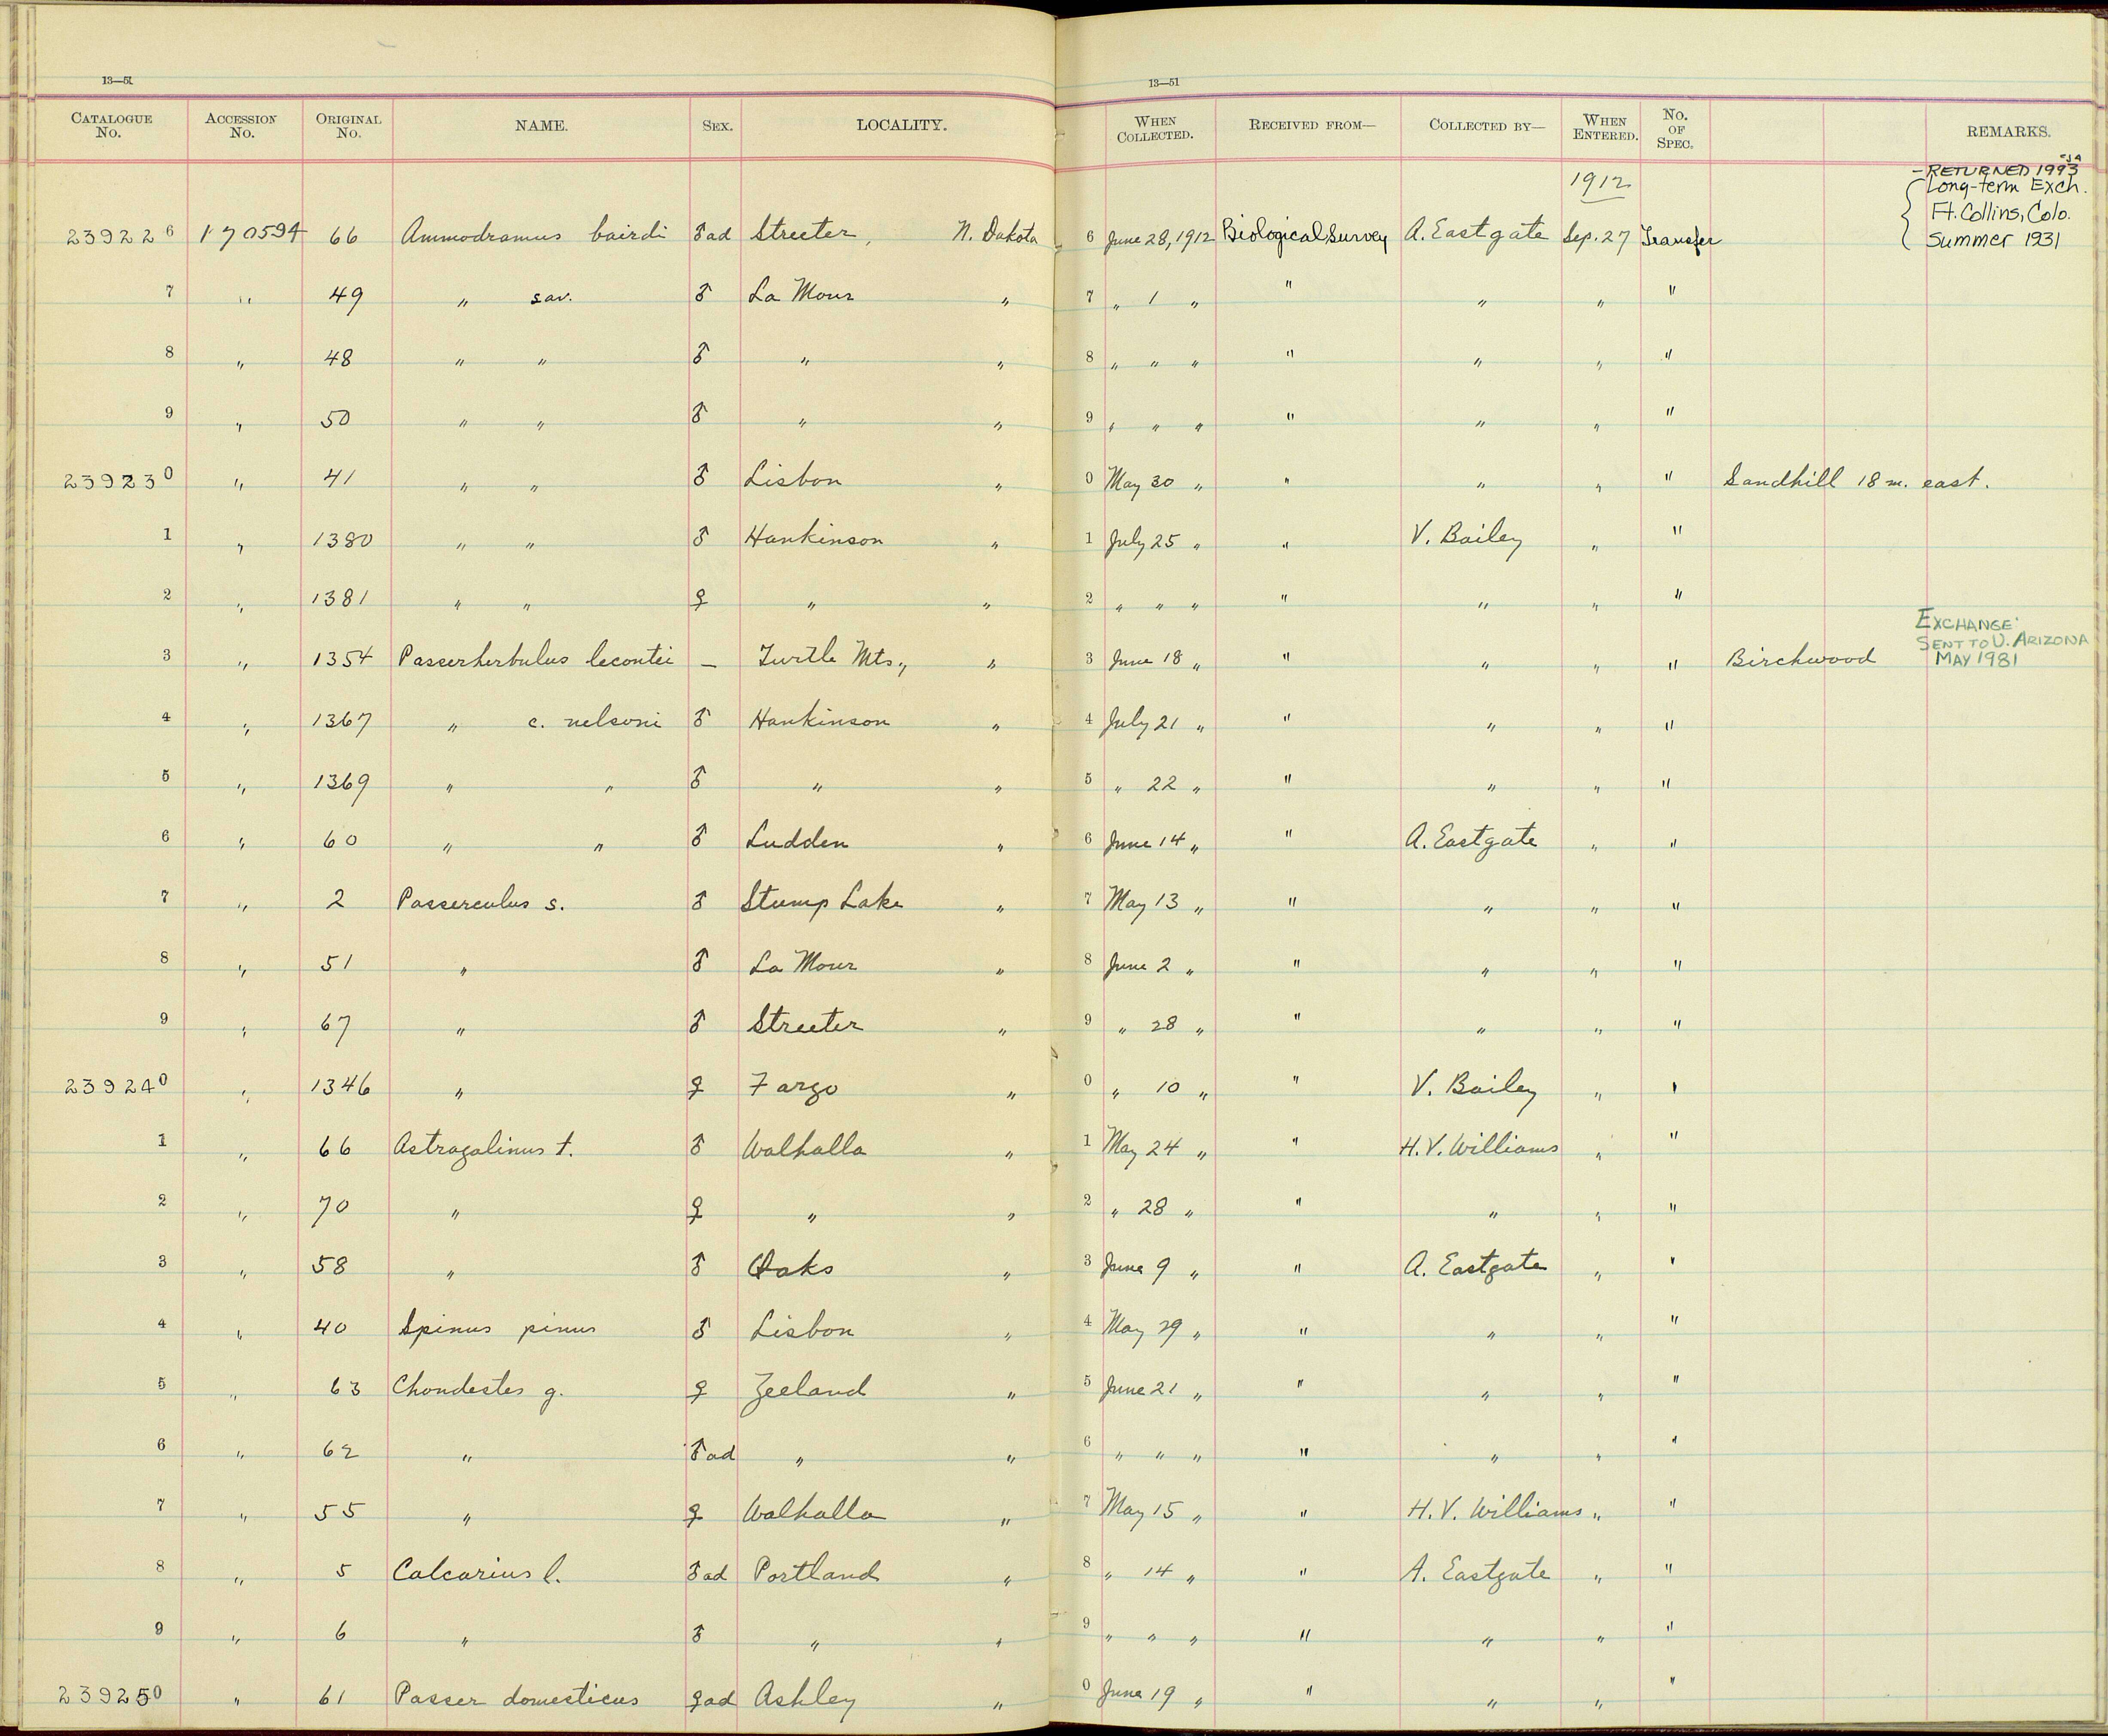 13—51 13—51
CATALOGUE No. ACCESSION No. ORIGINAL No. NAME. SEX. LOCALITY. WHEN COLLECTED. RECEIVED FROM— COLLECTED BY— WHEN ENTERED. No. OF SPEC. REMARKS.
1912
—RETURNED 1993
Long-term Exch.
Ft. Collins, Colo.
Summer 1931
239226 170594 66 Ammodramus bairdi ♂ad Streeter, N. Dakota 6 June 28, 1912 Biological Survey A. Eastgate Sep. 27 Transfer
7 " 49 " sav. ♂ La Mour " 7 " 1 " " " " "
8 " 48 " " ♂ " " 8 " " " " " " "
9 " 50 " " ♂ " " 9 " " " " " " "
239230 " 41 " " ♂ Lisbon " 0 May 30 " " " " " Sandhill 18 m. east.
1 " 1380 " " ♂ Hankinson " 1 July 25 " " V. Bailey " "
2 " 1381 " " ♀ " " 2 " " " " " " "
EXCHANGE:
SENT TO U. ARIZONA
MAY 1981
3 " 1354 Passerherbulus lecontei — Turtle Mts., " 3 June 18 " " " " " Birchwood
4 " 1367 " c. nelsoni ♂ Hankinson " 4 July 21 " " " " "
5 " 1369 " " ♂ " " 5 " 22 " " " " "
6 " 60 " " ♂ Ludden " 6 June 14 " " A. Eastgate " "
7 " 2 Passerculus s. ♂ Stump Lake " 7 May 13 " " " " "
8 " 51 " ♂ La Mour " 8 June 2 " " " " "
9 " 67 " ♂ Streeter " 9 " 28 " " " " "
239240 " 1346 " ♀ Fargo " 0 " 10 " " V. Bailey " "
1 " 66 Astragalinus t. ♂ Walhalla " 1 May 24 " " H. V. Williams " "
2 " 70 " ♀ " " 2 " 28 " " " " "
3 " 58 " ♂ Oaks " 3 June 9 " " A. Eastgate " "
4 " 40 Spinus pinus ♂ Lisbon " 4 May 29 " " " " "
5 " 63 Chondestes g. ♀ Zeeland " 5 June 21 " " " " "
6 " 62 " ♂ad " " 6 " " " " " " "
7 " 55 " ♀ Walhalla " 7 May 15 " " H. V. Williams " "
8 " 5 Calcarius l. ♂ad Portland " 8 " 14 " " A. Eastgate " "
9 " 6 " ♂ " " 9 " " " " " " "
239250 " 61 Passer domesticus ♀ad Ashley " 0 June 19 " " " " "